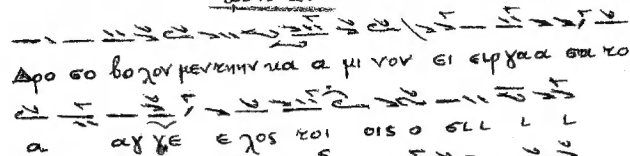 Δρο σο βολον μεν την κα α μι νον ει ειργαα σα το
α αγ γε ε λος τοι οις ο